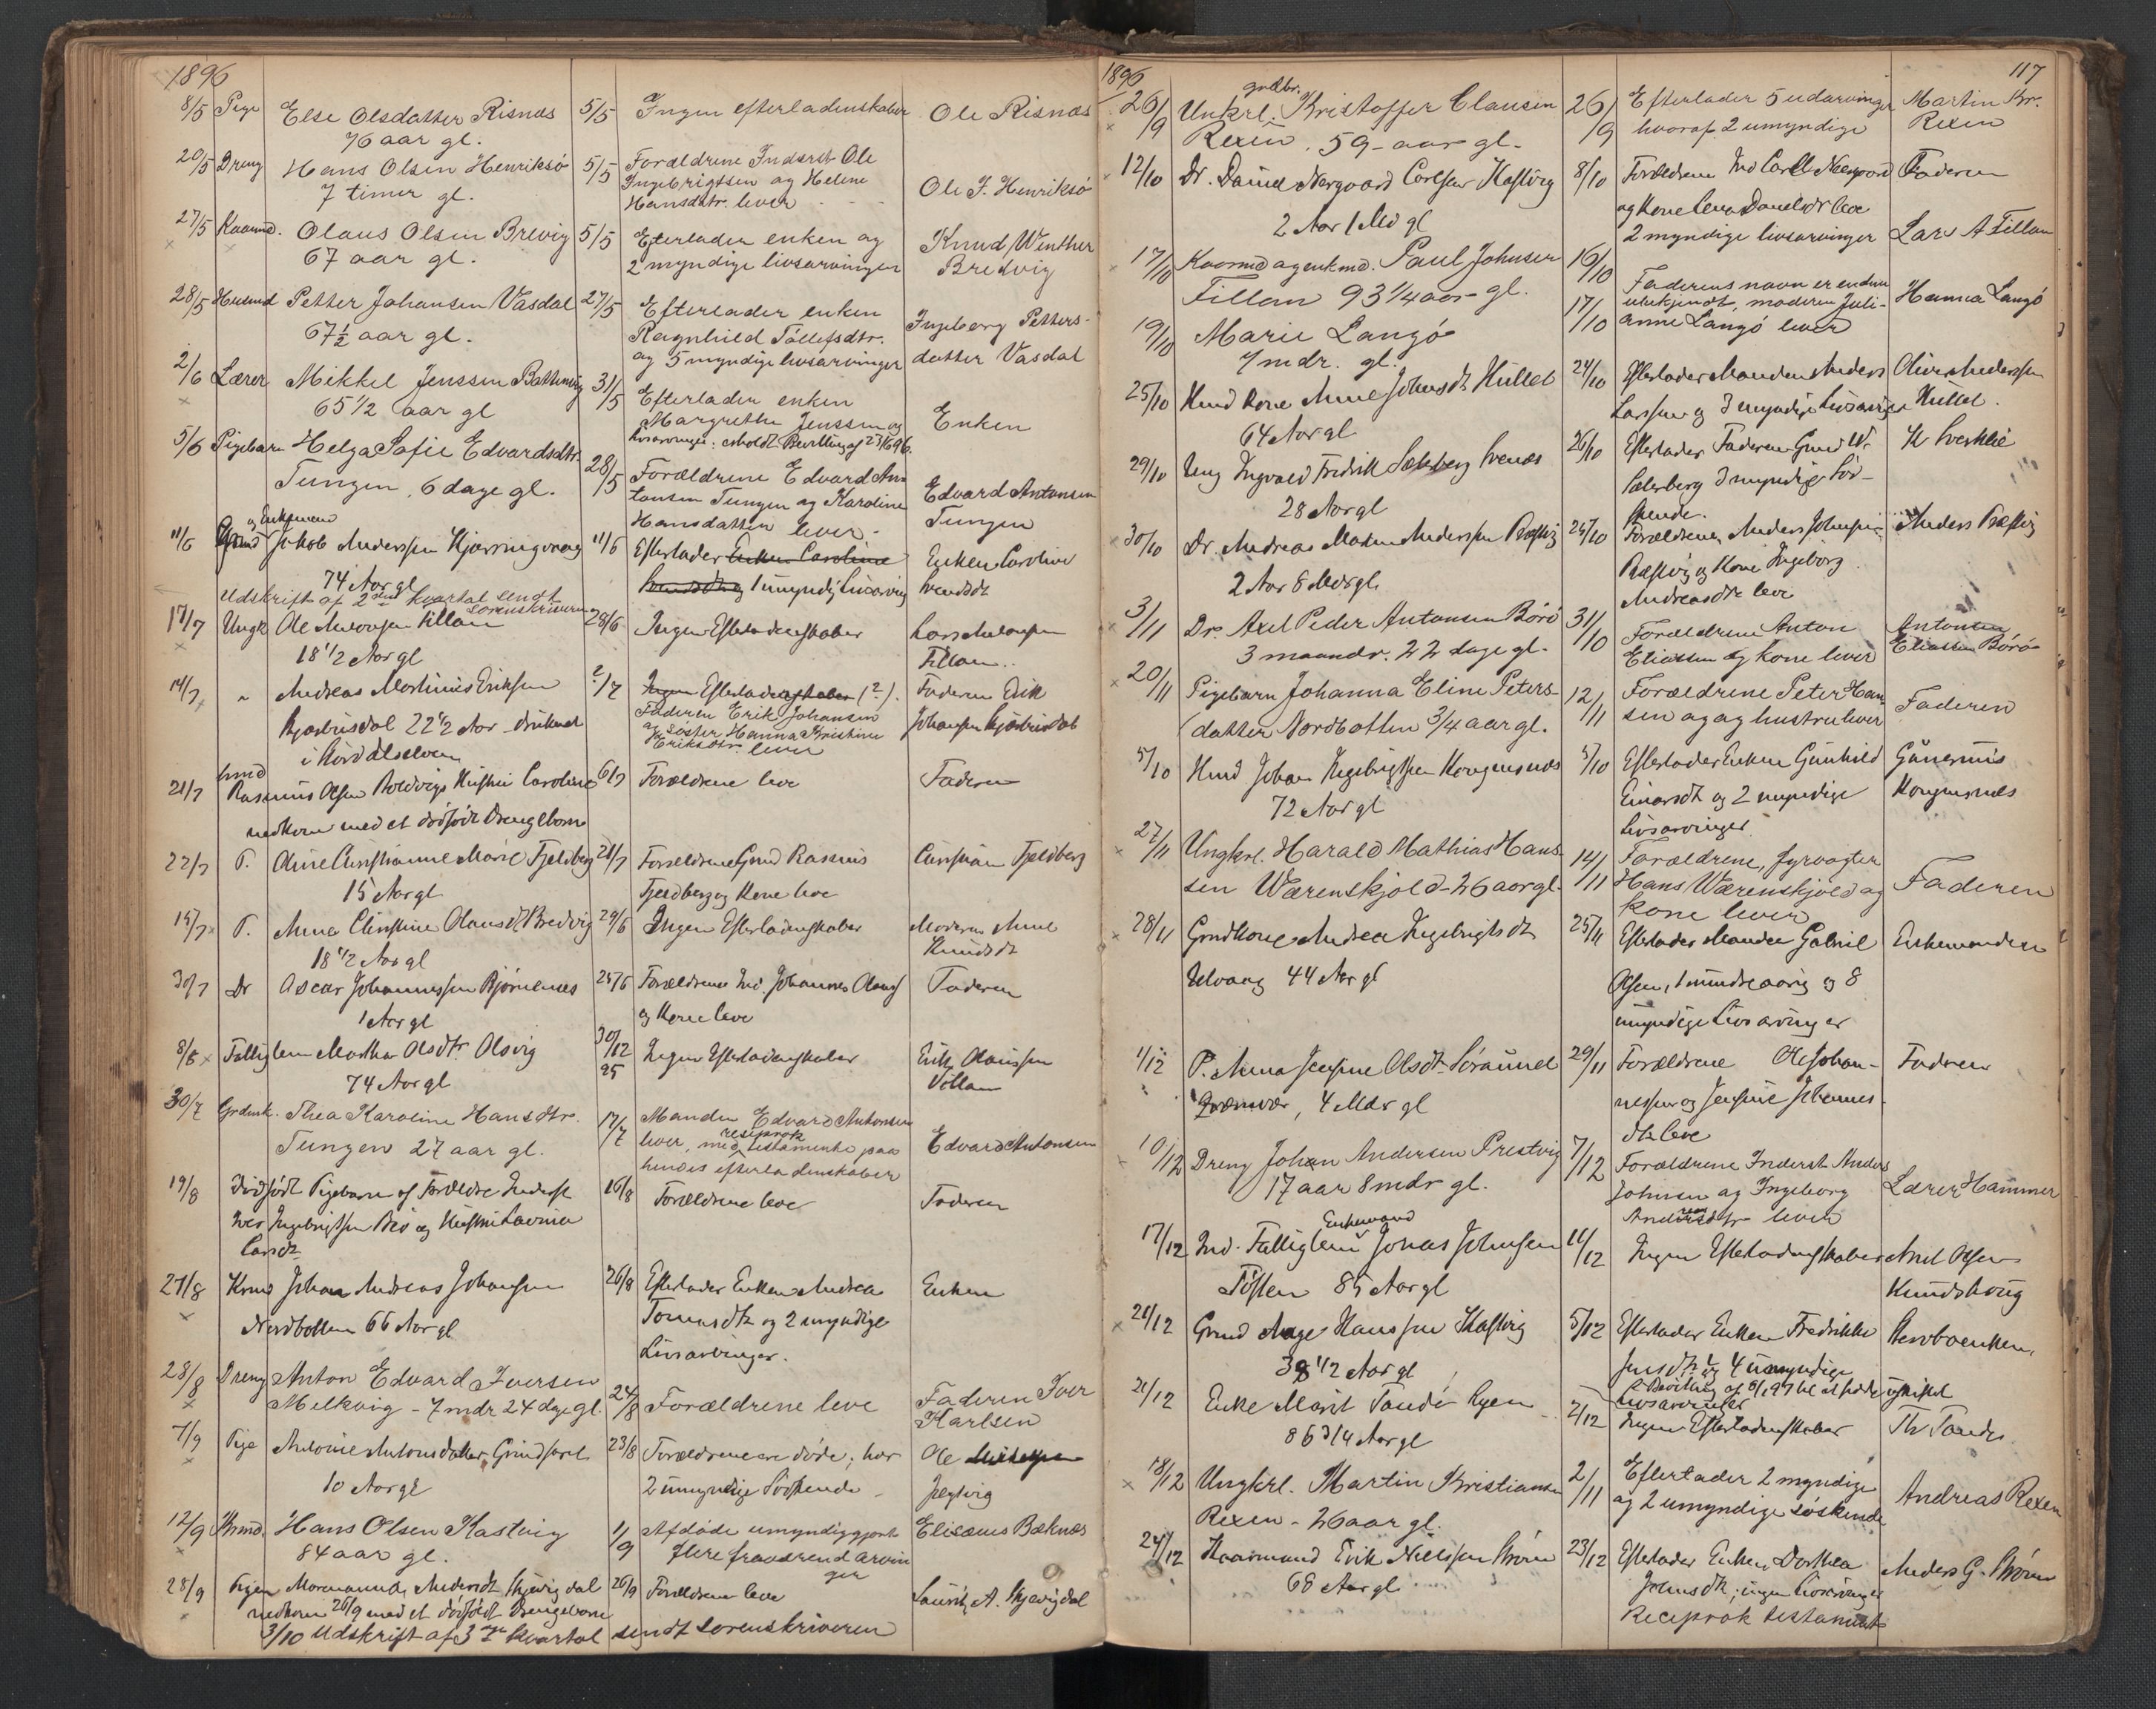 1896
8/5 Pige Else Olsdatter Risnæs 5/5 Ingen efterladenskaber Ole Risnæs
76 aar gl.
20/5 Dreng Hans Olsen Henriksö 5/5 Forældrene Inderst Ole
7 timer gl. Ingebrigtsen og Helene Ole J. Henriksö
Hansdatr. lever
27/5 Kaarmd. Olaus Olsen Brevig 5/5 Efterlader enken og Knud Winther
67 aar gl. 2 myndige livsarvinger Bredvig
28/5 Husmd Petter Johansen Vasdal 27/5 Efterlader enken Ingeborg Petters-
67½ aar gl. Ragnhild Tollefsdtr. datter Vasdal
og 5 myndige livsarvinger
2/6 Lærer Mikkel Jenssen 31/5 Efterlader enken Enken
65 1/2 aar gl Margrethe Jenssen og
livsarvinger.
5/6 Pigebarn Helga Sofie Edvardsdtr. 28/5 Forældrene Edvard An-
Tungen, 6 dage gl. tonsen Tungen og Karoline Edvard Antonsen
Hansdatter lever Tungen
og Enkemand
11/6 Jakob Anderssen Kjærringvaag 11/6 Efterlader Enken Caroline Enken Caroline
74 Aar gl 1 umyndig Livsarving
Udskrift af 2det kvartal sendt
Sorenskriveren
17/7 Ungk Ole Antonsen Fillan 28/6 Ingen Efterladenskaber Lars Antonsen
18 1/2 Aar gl Fillan
14/7 " Andreas Martinus Eriksen 2/7 Ingen Efterladenskaber (?). Faderen Erik
22 1/2 Aar druknet Faderen Erik Johansen Johansen
i og Søster Hanna Kristine
Eriksdtr. lever
21/7 Rasmus Olsen Hustru Caroline 6/7 Forældrene leve Faderen
nedkom med et dødfødt Drengebarn
22/7 P. Oline Christianne Marie Fjeldberg 21/7 Forældrene Rasmus Christian Fjeldberg
15 Aar gl Fjeldberg og Kone leve
15/7 P. Anna Christine Olausdt Bredvig 29/6 Ingen Efterladenskaber Moderen Anne
18 1/2 Aar gl Knudsdt
30/7 Dr Oscar Johannessen Bjørnenes 25/6 Forældrene Ind. Johannes Faderen
1 Aar gl og Kone leve
8/8 Fattiglem Martha Olsdtr. Olsvig 30/12 95 Ingen Efterladenskaber Erik Olaussen
74 Aar gl
30/7 Grdmk. Thea Karoline Hansdtr. 17/7 Manden Edvard Antonsen
Tungen 27 aar gl. lever, med reciprok testamente paa Edvard Antonsen
hendes efterladenskaber
19/8 Dødfødt Pigebarn af Forældre Inderst 16/8 Forældrene leve Faderen
Iver Ingebrigtsen og Hustru Lavina
Larsdt
27/8 Johan Andreas Johansen 26/8 Efterlader Enken Andrea Enken
Nordbotten 66 Aar gl Tomasdt og 2 myndige
Livsarvinger.
28/8 Dreng Anton Edvard Iversen 24/8 Forældrene leve Faderen Iver
Melkvig - 7 mdr 24 dage gl. Karlsen
7/9 Pige Antonie Antonsdatter 23/8 Forældrene ere døde, har Ole
10 Aar gl 2 umyndige Søskende
12/9 Hans Olsen Kastvig 1/9 Afdøde umyndiggjort Elisæus Bæknæs
84 aar gl. flere fraværende arvin
ger
28/9 Pigen Andersdt 26/9 Forældrene leve
nedkom 26/9 med et dødfødt Drengebarn
3/10 Udskrift af 3die kvartal sendt Sorenskriveren
1896 117
grdbr.
26/9 Unkrl. Kristoffer Clausen 26/9 Efterlader 5 udarvinger Martin Kr.
Rexen, 59 aar gl. hvoraf 2 umyndige Rexen
12/10 Dr. Daniel Nergaard Carlsen Kastvig 8/10 Forældrene Ind Carl Nergaard Faderen
2 Aar 1 Md gl og Kone
2 myndige livsarvinger Lars A Fillan
17/10 Kaarmd og enkmd. Paul Johnsen 16/10
Fillan 93 1/4 aar gl.
19/10 Marie Langö 17/10 Faderens navn er endnu Hanna Langö
7 mdr. gl. ubekjendt, moderen Juli-
anne Langö lever
25/10 Kone Anne Johnsdt Hullet 24/10 Efterlader Manden Anders Oliver Anderssen
64 Aar gl Larssen og 3 myndige Livsarvinger Hullet.
29/10 Ung Ingvald Fredrik 26/10 Efterlader Faderen
28 Aar gl 3 myndige Sö-
skende.
30/10 Dr. Andreas Anderssen 25/10 Forældrene Anders Johnsen Anders
2 Aar 8 Mdr gl. og Kone Ingeborg
Andreasdtr leve
3/11 Dr. Axel Peder Antonsen Börö 31/10 Forældrene Anton Antonsen
3 maandr. 22 dage gl. Eliassen og kone lever Eliassen Börö
20/11 Pigebarn Johanna Eline Peters- 12/11 Forældrene Peter Han-
datter Nordbotten 3/4 aar gl. sen og og hustru lever Faderen
5/10 Johan Ingebrigtsen Kongensnæs 3/10 Efterlader Enken Gunhild
72 Aar gl Einarsdt og 2 myndige Kongensnæs
Livsarvinger
27/11 Ungkrl. Harald Mathias Hans- 14/11 Forældrene, fyrvogter
sen Wærenskjold - 26 aar gl. Hans Wærenskjold og Faderen
kone lever
28/11 Grmdkone Andrea Ingebrigtsdt 25/11 Efterlader Manden Gabriel Enkemanden
Ulvaag 44 Aar gl Olsen, 1 mindreaarig og 8
umyndige Livsarvinger
1/12 P. Anna Jensine Olsdt 29/11 Forældrene Ole Johan- Faderen
4 Mdr gl nessen og Jensine Johannes-
dtr leve
10/12 Dreng Johan Andersen Prestvig 7/12 Forældrene Inderst Anders
17 aar 8 mdr gl. Johnsen og Ingeborg Lærer Hammer
lever
Enkemand
17/12 Ind. Fattiglem Jonas Johnsen 11/12 Ingen Efterladenskaber Olsen
85 Aar gl Knudshoug
21/12 Aage Hanssen Kastvig 5/12 Efterlader Enken Fredrikke
38 1/2 Aar gl Jensdtr og 4 umyndige
livsarvinger
21/12 Enke Marit 2/12 Ingen Efterladenskaber
86 3/4 Aar gl
18/12 Ungkrl. Martin Kristiansen 2/11 Efterlader 2 myndige
Rexen - 26 aar gl. og 2 umyndige söskende Andreas Rexen
24/12 Kaarmand Erik Nielssen 23/12 Efterlader Enken Dorthea Anders G.
68 Aar gl Jonsdtr, ingen Livsarvinger
Reciprok testament